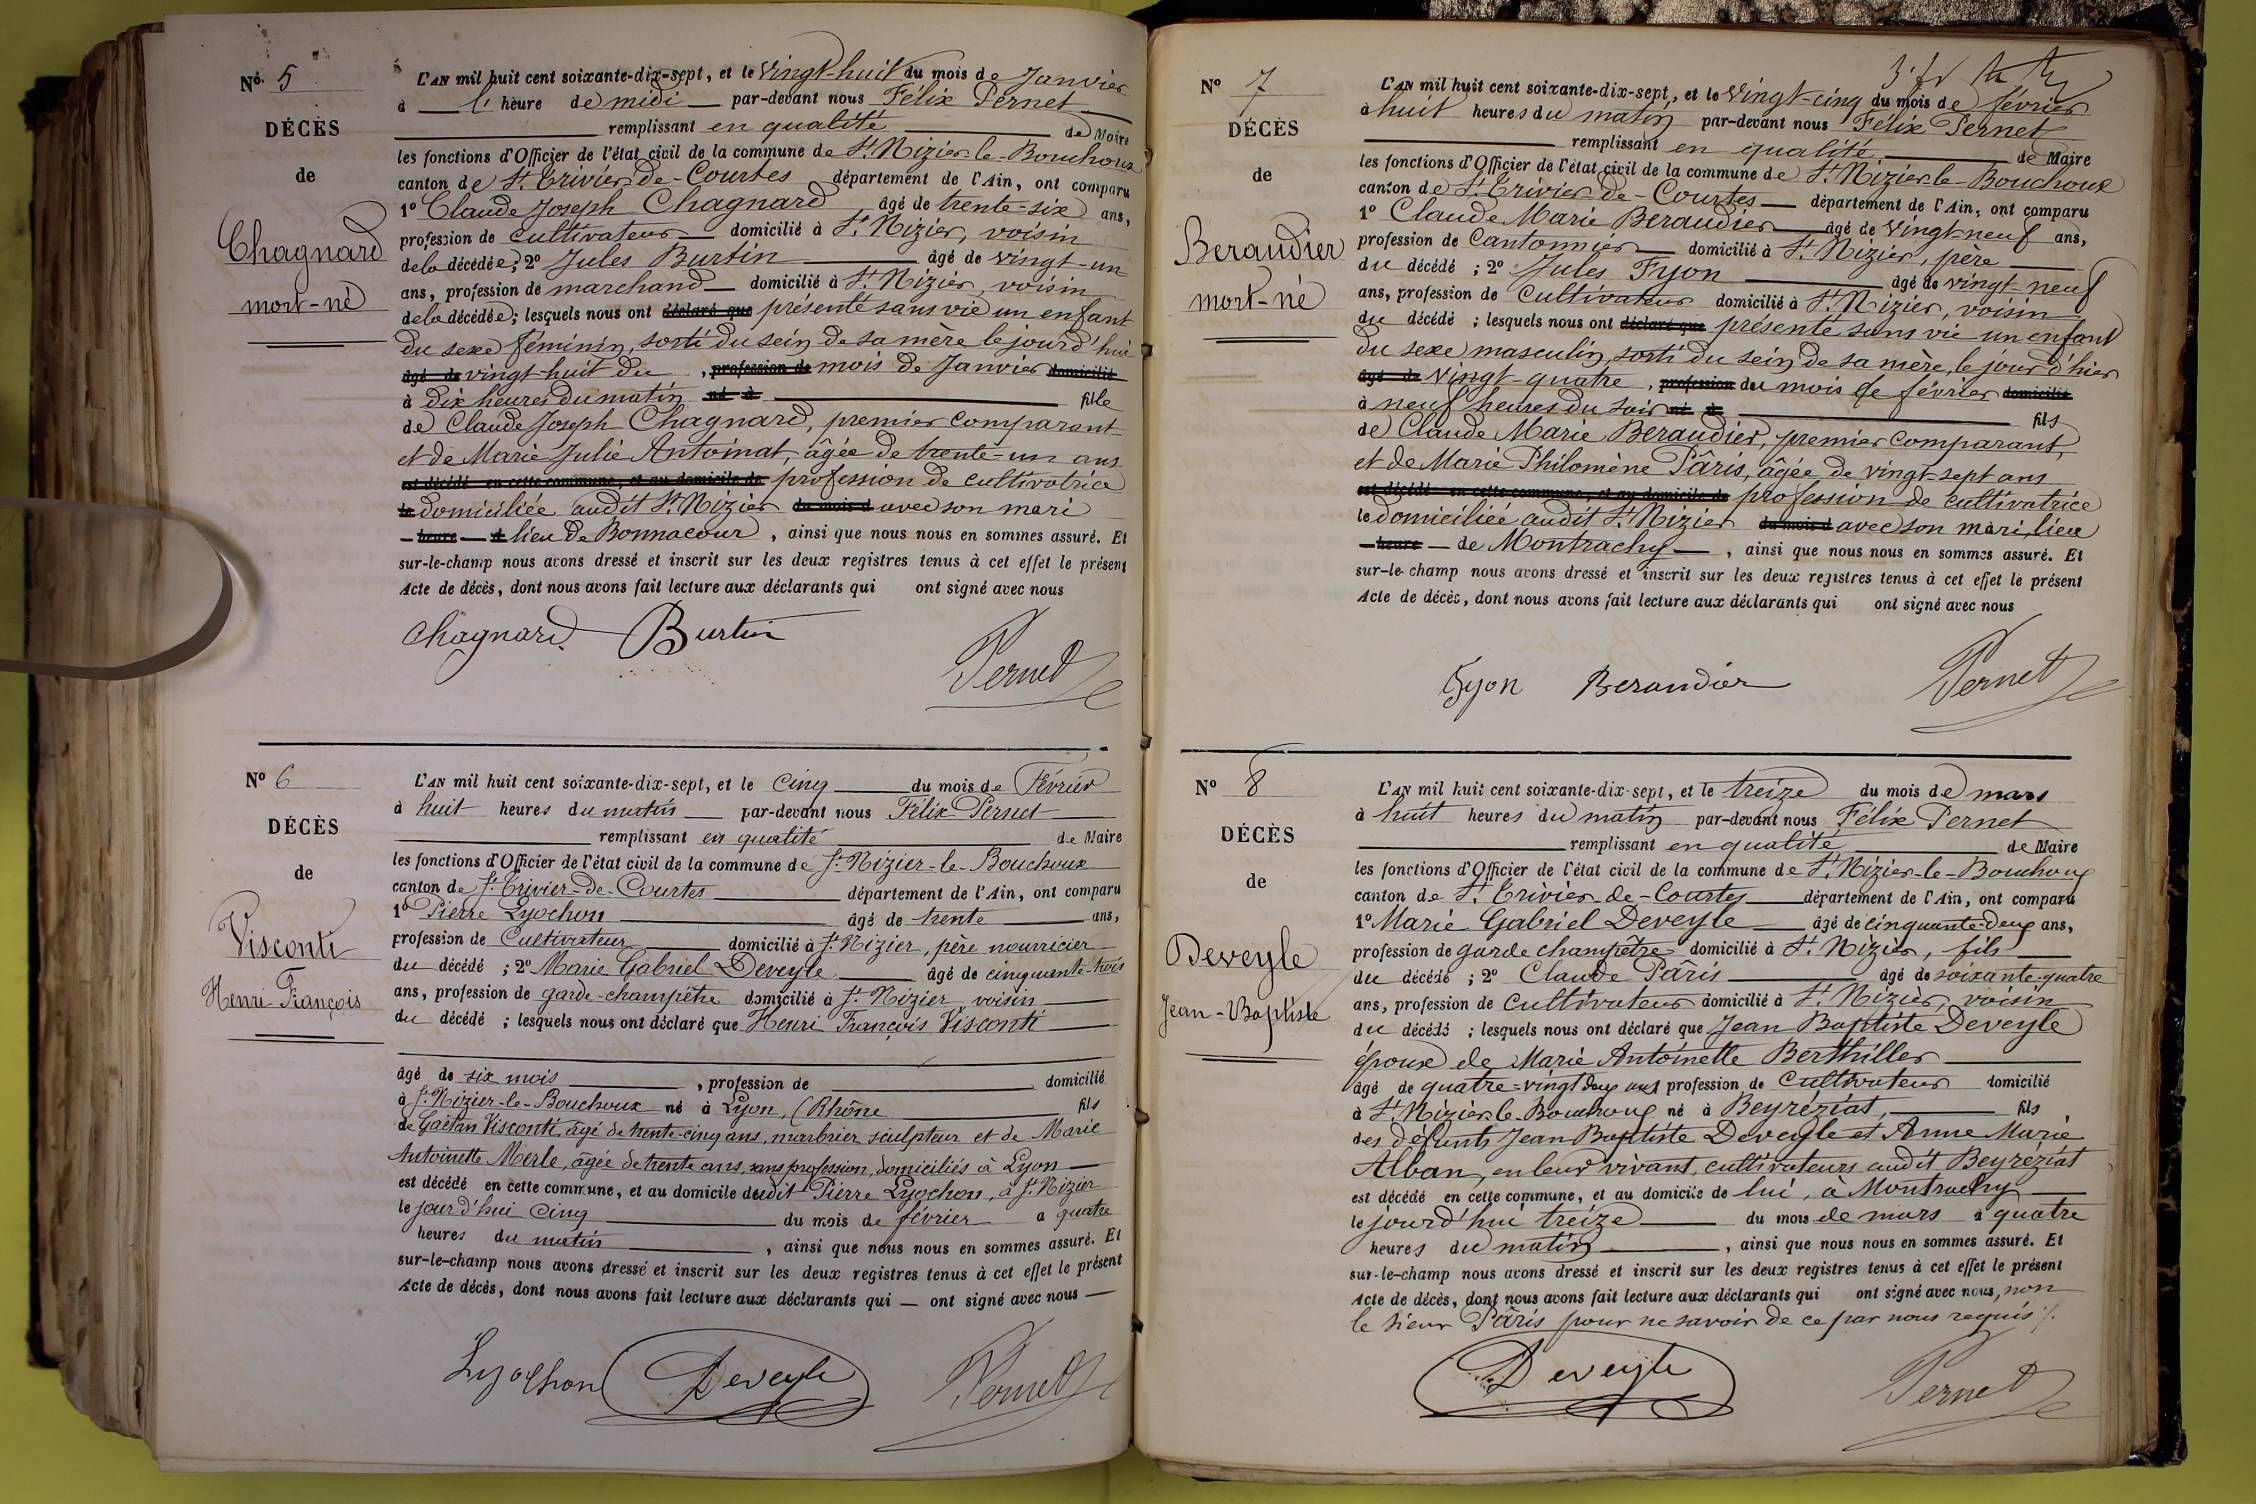 N° 5
DÉCÈS
de
Chagnard
mort-né
L'AN mil huit cent soixante-dix-sept, et le Vingt-huit du mois de Janvier
à l' heure de midi par-devant nous Félix Pernet
remplissant en qualité de Maire
les fonctions d'Officier de l'état civil de la commune de St Nizier-le-Bouchoux
canton de St Trivier-de-Courtes département de l'Ain, ont comparu
1° Claude Joseph Chagnard âgé de trente-six ans,
profession de cultivateur domicilié à St Nizier, voisin
de la décédée; 2° Jules Burtin âgé de vingt-un
ans, profession de marchand domicilié à St Nizier, voisin
de la décédée; lesquels nous ont déclaré que présenté sans vie un enfant
du sexe féminin, sorti du sein de sa mère le jourd'hui
âgé de vingt-huit du , profession de mois de Janvier domicilié
à dix heures du matin né à fille
de Claude Joseph Chagnard, premier comparant
et de Marie Julie Antoinat, âgée de trente-un ans
est décédé en cette commune, et au domicile de profession de cultivatrice
le domiciliée audit St Nizier du mois d avec son mari
heure et lieu de Bonnacour, ainsi que nous nous en sommes assuré. Et
sur-le-champ nous avons dressé et inscrit sur les deux registres tenus à cet effet le présent
Acte de décès, dont nous avons fait lecture aux déclarants qui ont signé avec nous
Chagnard Burtin
Pernet
N° 6
DÉCÈS
de
Visconti
Henri François
L'AN mil huit cent soixante-dix-sept, et le cinq du mois de Février
à huit heures du matin par-devant nous Félix Pernet
remplissant en qualité de Maire
les fonctions d'Officier de l'état civil de la commune de St Nizier-le-Bouchoux
canton de St Trivier-de-Courtes département de l'Ain, ont comparu
1° Pierre Lyochon âgé de trente ans,
profession de Cultivateur domicilié à St Nizier, père nourricier
du décédé ; 2° Marie Gabriel Deveyle âgé de cinquante-trois
ans, profession de garde-champêtre domicilié à St Nizier voisin
du décédé ; lesquels nous ont déclaré que Henri François Visconti
âgé de six mois , profession de domicilié
à St Nizier-le-Bouchoux né à Lyon, (Rhône fils
de Gaëtan Visconti, âgé de trente-cinq ans, marbrier sculpteur et de Marie
Antoinette Merle, âgée de trente ans, sans profession, domiciliés à Lyon
est décédé en cette commune, et au domicile dudit Pierre Lyochon, à St Nizier
le jourd'hui cinq du mois de février à quatre
heures du matin , ainsi que nous nous en sommes assuré. Et
sur-le-champ nous avons dressé et inscrit sur les deux registres tenus à cet effet le présent
Acte de décès, dont nous avons fait lecture aux déclarants qui — ont signé avec nous —
Lyochon Deveyle Pernet
N° 7
DÉCÈS
de
Beraudier
mort-né
L'AN mil huit cent soixante-dix-sept, et le Vingt-cinq du mois de février
à huit heures du matin par-devant nous Félix Pernet
remplissant en qualité de Maire
les fonctions d'Officier de l'état civil de la commune de St Nizier-le-Bouchoux
canton de St Trivier-de-Courtes département de l'Ain, ont comparu
1° Claude Marie Beraudier âgé de vingt-neuf ans,
profession de Cantonnier domicilié à St Nizier, père
du décédé ; 2° Jules Fyon âgé de vingt-neuf
ans, profession de cultivateur domicilié à St Nizier, voisin
du décédé ; lesquels nous ont déclaré que présenté sans vie un enfant
du sexe masculin, sorti du sein de sa mère, le jour d'hier
âgé de vingt-quatre, profession du mois de février domicilié
à neuf heures du soir né à fils
de Claude Marie Beraudier, premier comparant,
et de Marie Philomène Pâris, âgée de vingt-sept ans
est décédé en cette commune, et au domicile de profession de cultivatrice
le domiciliée audit St Nizier du mois d avec son mari, lieu
heure de Montrachy , ainsi que nous nous en sommes assuré. Et
sur-le-champ nous avons dressé et inscrit sur les deux registres tenus à cet effet le présent
Acte de décès, dont nous avons fait lecture aux déclarants qui ont signé avec nous
Fyon Beraudier Pernet
N° 8
DÉCÈS
de
Deveyle
Jean-Baptiste
L'AN mil huit cent soixante-dix-sept, et le treize du mois de mars
à huit heures du matin par-devant nous Félix Pernet
remplissant en qualité de Maire
les fonctions d'Officier de l'état civil de la commune de St Nizier-le-Bouchoux
canton de St Trivier-de-Courtes département de l'Ain, ont comparu
1° Marie Gabriel Deveyle âgé de cinquante-deux ans,
profession de garde champêtre domicilié à St Nizier, fils
du décédé ; 2° Claude Pâris âgé de soixante-quatre
ans, profession de cultivateur domicilié à St Nizier, voisin
du décédé ; lesquels nous ont déclaré que Jean Baptiste Deveyle
époux de Marie Antoinette Berthiller
âgé de quatre-vingt deux ans profession de cultivateur domicilié
à St Nizier-le-Bouchoux né à Beyréziat, fils
des défunts Jean Baptiste Deveyle et Anne Marie
Alban, en leur vivant, cultivateurs audit Beyréziat
est décédé en cette commune, et au domicile de lui, à Montrachy
le jourd'hui treize du mois de mars à quatre
heures du matin , ainsi que nous nous en sommes assuré. Et
sur-le-champ nous avons dressé et inscrit sur les deux registres tenus à cet effet le présent
Acte de décès, dont nous avons fait lecture aux déclarants qui ont signé avec nous, non
le sieur Pâris pour ne savoir de ce par nous requis ./.
Deveyle Pernet